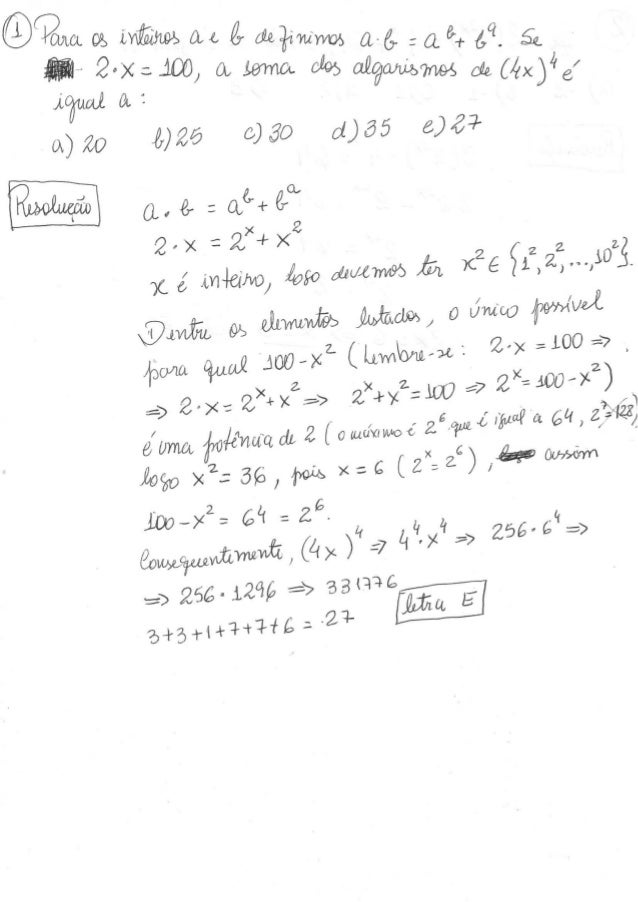 1 Para os inteiros a e b definimos a·b = a^b + b^a. Se
2·x = 100, a soma dos algarismos de (4x)^4 é
igual a :
a) 20 b) 25 c) 30 d) 35 e) 27
Resolução a·b = a^b + b^a
2·x = 2^x + x^2
x é inteiro, logo devemos ter x^2 ∈ {1^2, 2^2, ..., 10^2}.
Dentre os elementos listados, o único possível
para qual 100-x^2 (Lembre-se: 2·x = 100 ⇒
⇒ 2·x = 2^x + x^2 ⇒ 2^x + x^2 = 100 ⇒ 2^x = 100 - x^2)
é uma potência de 2 (o máximo é 2^6 que é igual a 64, 2^7=128),
logo x^2 = 36, pois x = 6 (2^x = 2^6), assim
100 - x^2 = 64 = 2^6.
Consequentemente, (4x)^4 ⇒ 4^4·x^4 ⇒ 256·6^4 ⇒
⇒ 256·1296 ⇒ 331776
3+3+1+7+7+6 = 27 letra E